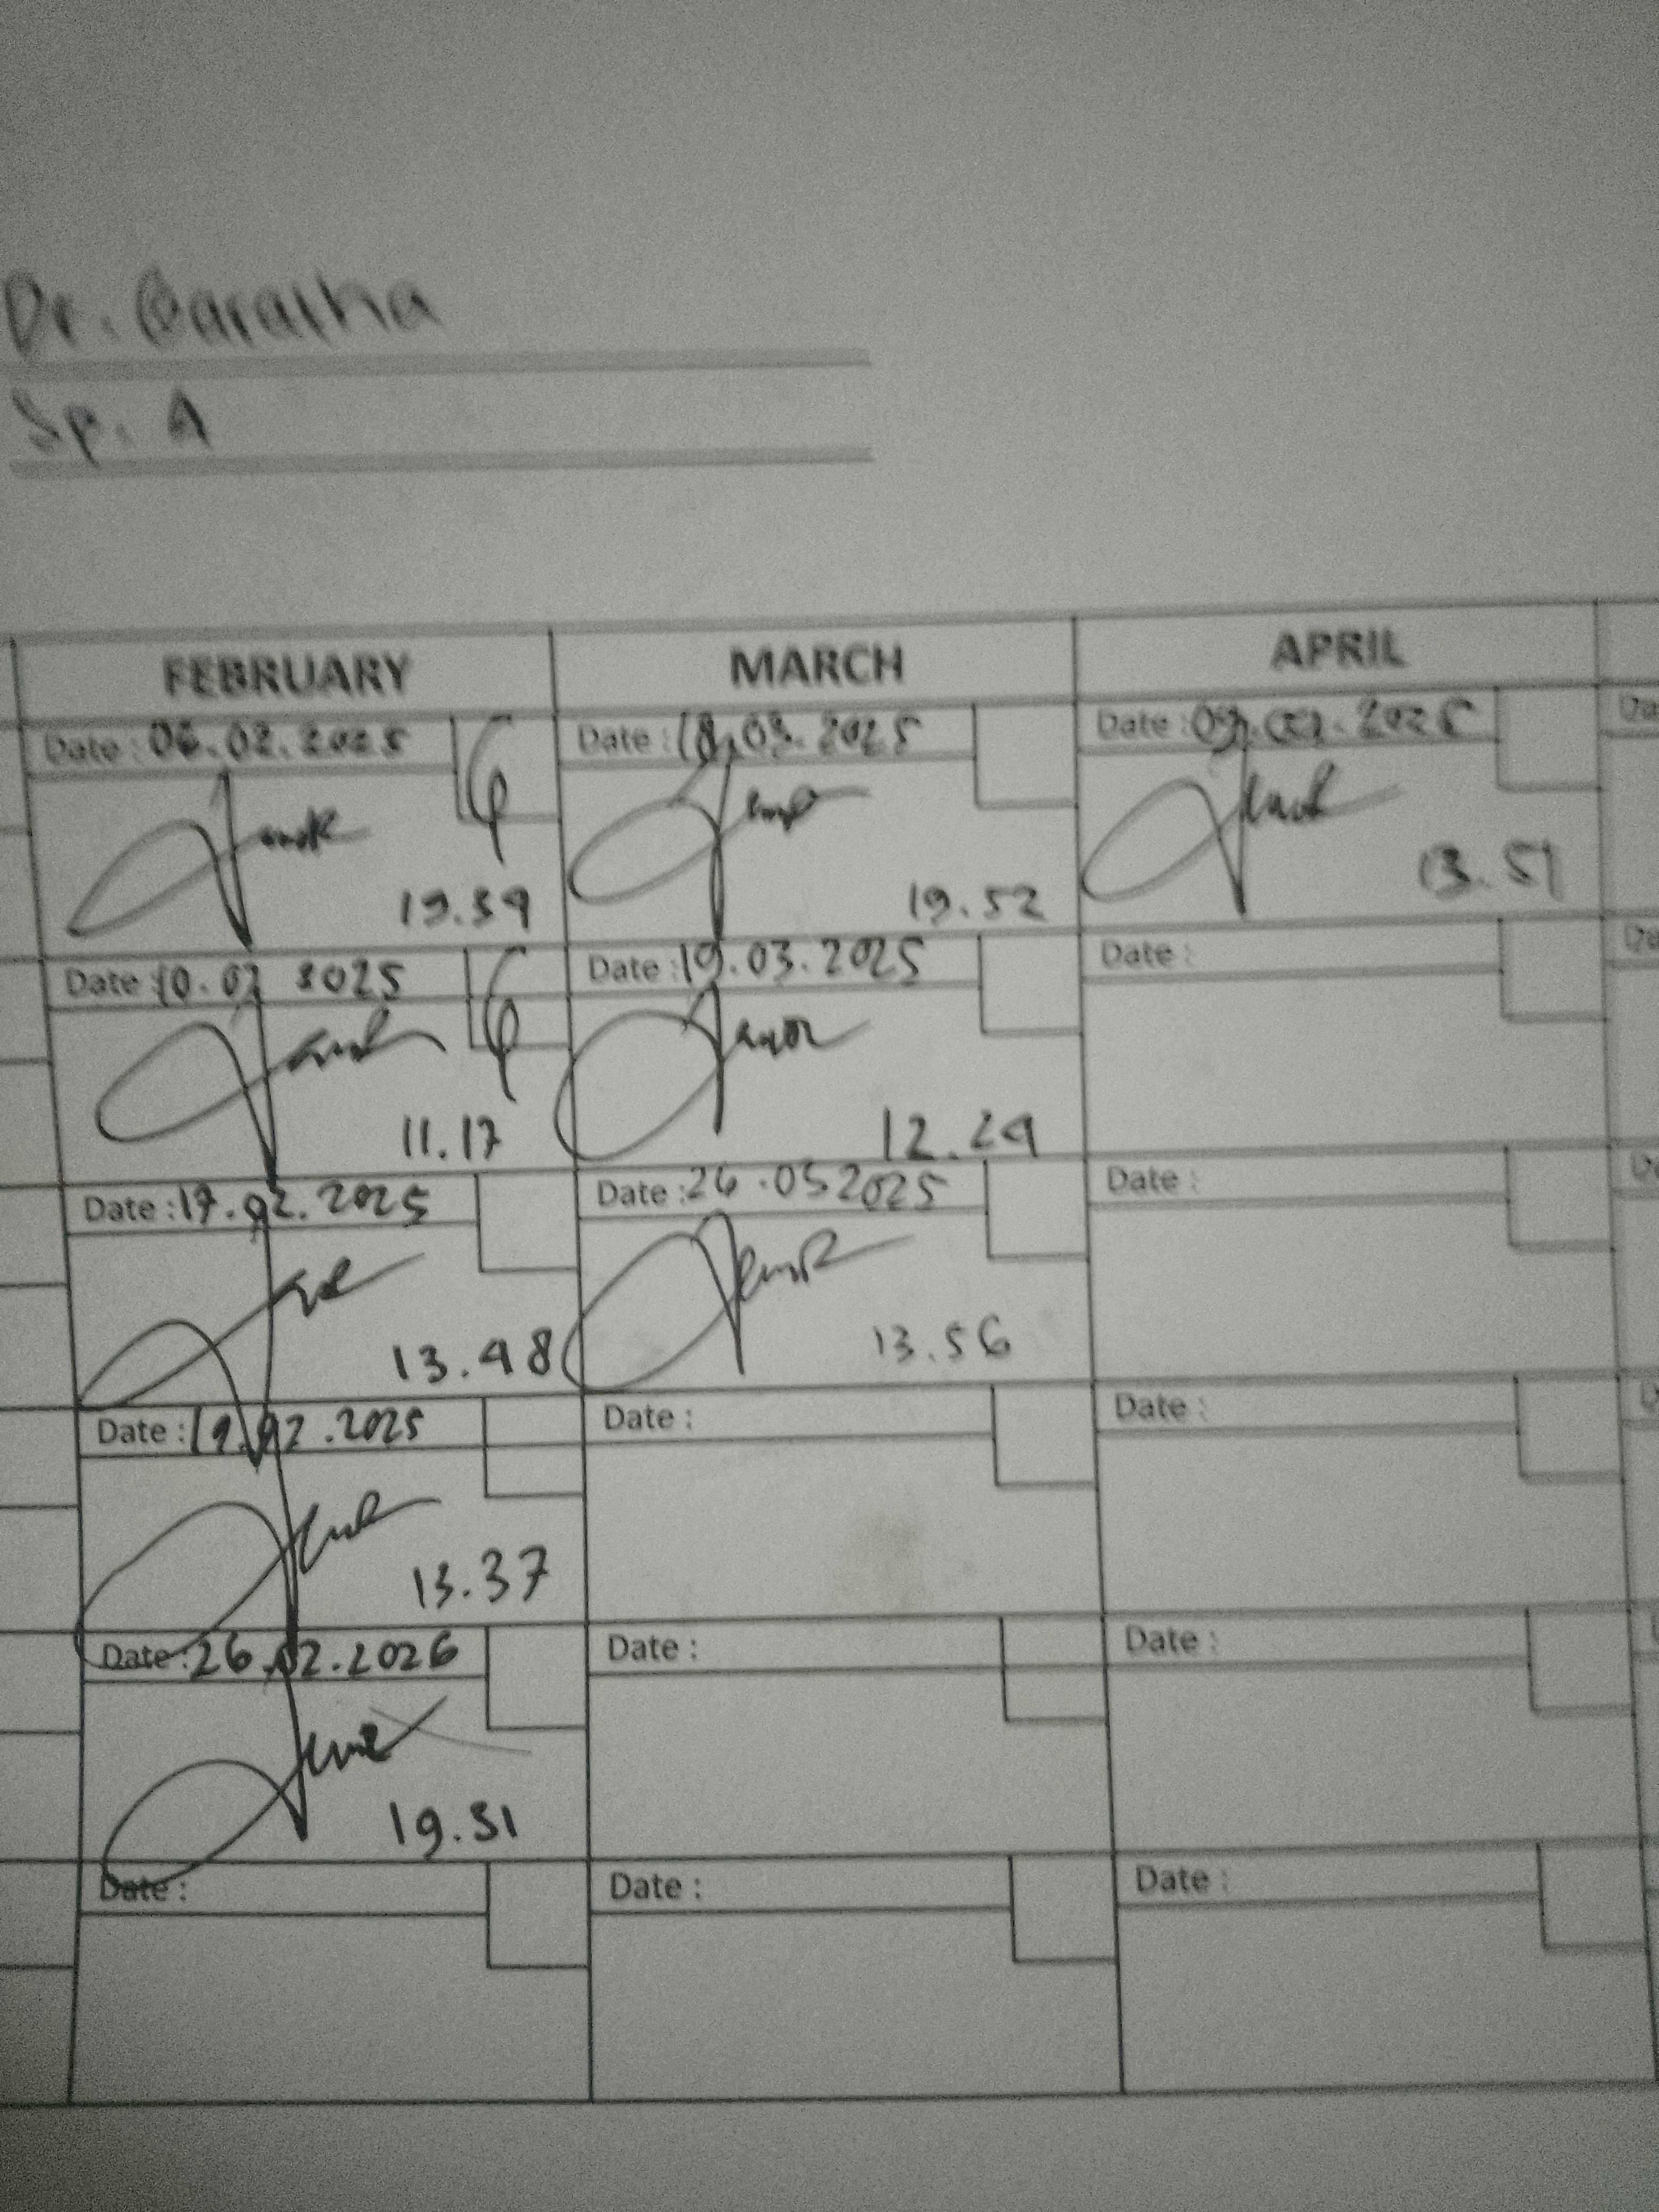 Dr.
Sp. A
FEBRUARY MARCH APRIL
Date : 06.02.2025
Date : 18.03.2025
Date :
19.52
13.51
Date 10.02 2025
Date : 19.03.2025
Date :
11.17
12.29
Date : 17.02.2025
Date : 26.03 2025
Date :
13.48
13.56
Date : 19.02.2025
Date :
Date :
13.37
Date : 26.02.2026
Date :
Date :
19.51
Date :
Date :
Date :